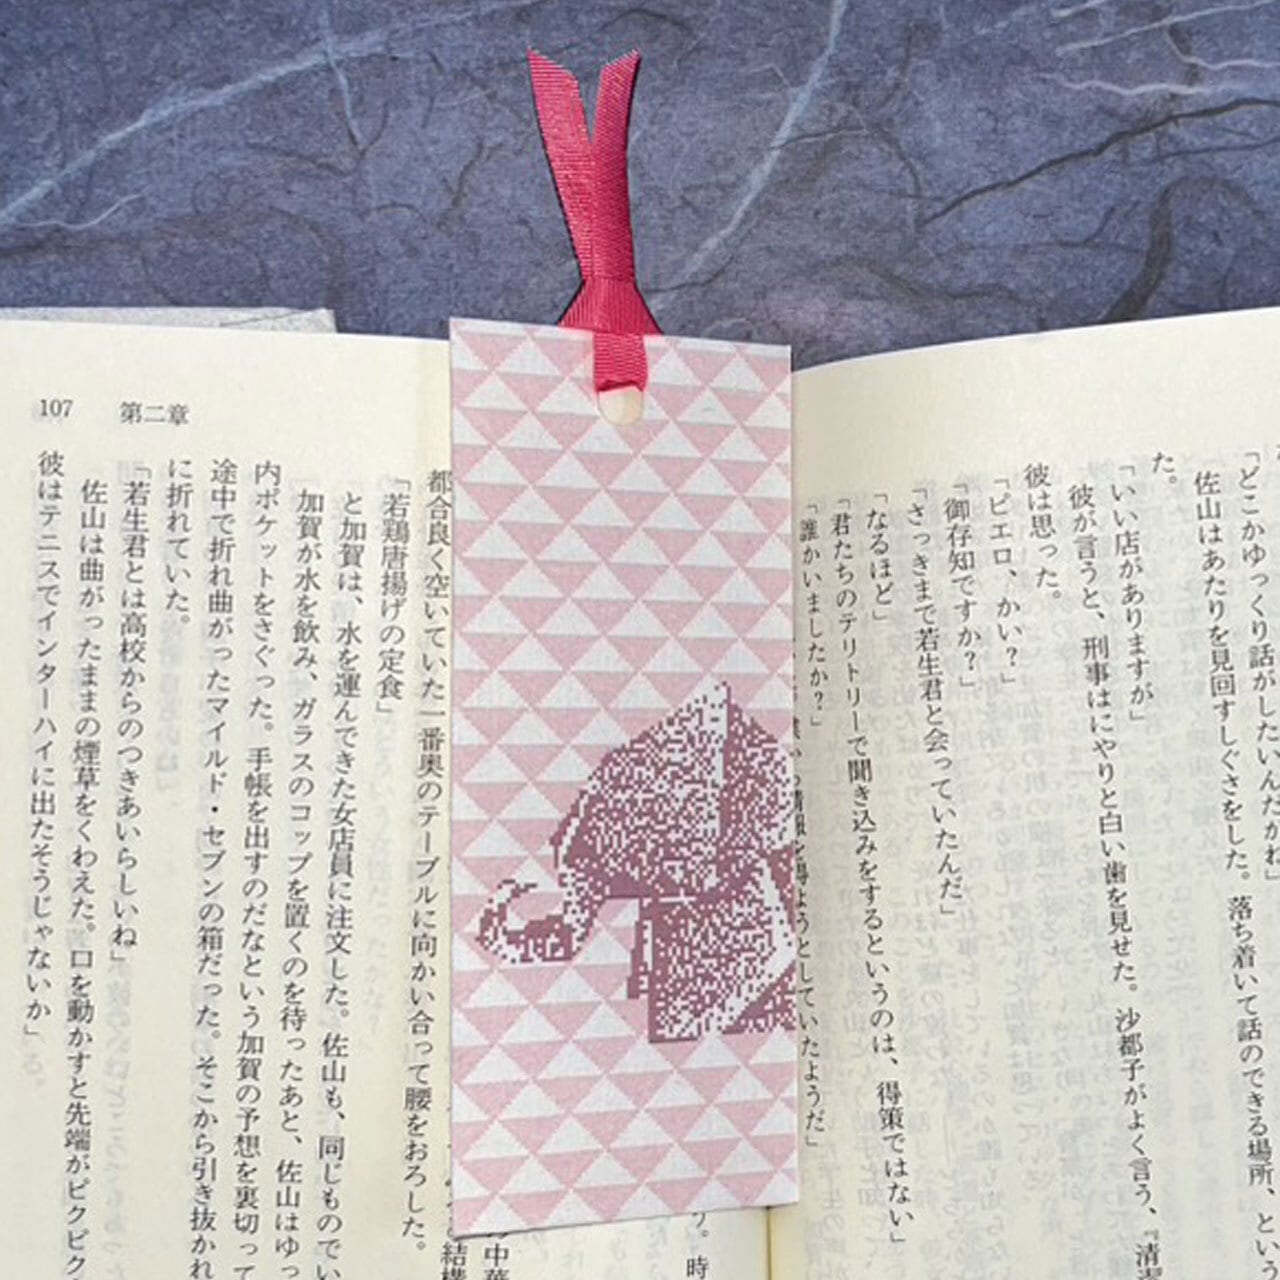 「どこかゆっくり話がしたいんだがね」
佐山はあたりを見回すしぐさをした。落ち着いて話のできる場所、という
た。
「いい店がありますが」
彼が言うと、刑事はにやりと白い歯を見せた。沙都子がよく言う、『清
彼は思った。
「ピエロ、かい？」
「御存知ですか？」
「さっきまで若生君と会っていたんだ」
「なるほど」
「君たちのテリトリーで聞き込みをするというのは、得策ではない」
「誰かいましたか？」
を得ようとしていたようだ」
。時
の中華
結構
都合良く空いていた一番奥のテーブルに向かい合って腰をおろした。
「若鶏唐揚げの定食」
と加賀は、水を運んできた女店員に注文した。佐山も、同じものでい
加賀が水を飲み、ガラスのコップを置くのを待ったあと、佐山はゆっ
内ポケットをさぐった。手帳を出すのだなという加賀の予想を裏切って
途中で折れ曲がったマイルド・セブンの箱だった。そこから引き抜かれ
に折れていた。
「若生君とは高校からのつきあいらしいね」
佐山は曲がったままの煙草をくわえた。口を動かすと先端がピクピク
彼はテニスでインターハイに出たそうじゃないか」
107 第二章